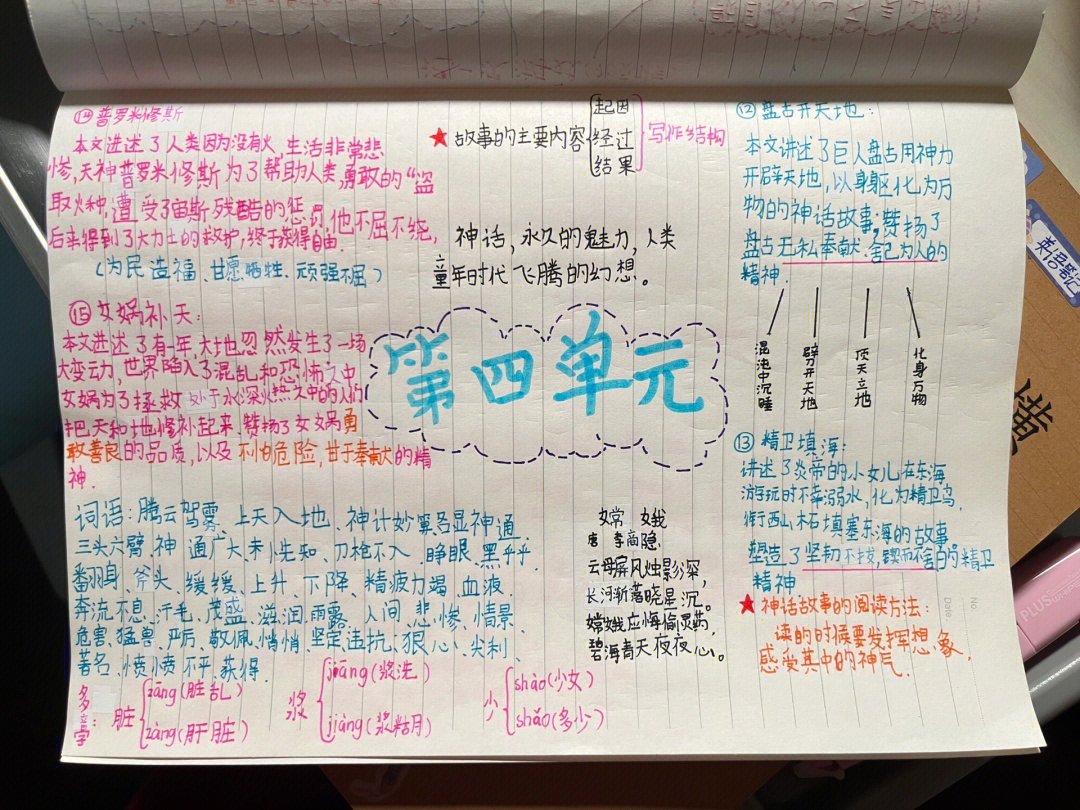 ⑭普罗米修斯
本文进述了人类因为没有火,生活非常悲
惨,天神普罗米修斯为了帮助人类勇敢的“盗
取火种,遭受了宙斯残酷的惩罚,他不屈不绕,
后来得到了大力士的救护,终于获得自由.
(为民造福、甘愿牺牲、顽强不屈)
⑮女娲补天:
本文进述了有一年,大地忽然发生了一场
大变动,世界陷入了混乱和恐怖之中
女娲为了拯救处于水深火热之中的人们
把天和地修补起来.赞扬了女娲勇
敢善良的品质,以及不怕危险,甘于奉献的精
神.
★故事的主要内容
起因
经过
结果
写作结构
神话,永久的魅力,人类
童年时代飞腾的幻想。
第四单元
⑫盘古开天地:
本文讲述了巨人盘古用神力
开辟天地,以身躯化为万
物的神话故事;赞扬了
盘古无私奉献、舍己为人的
精神.
混沌中沉睡
劈开天地
顶天立地
化身万物
⑬精卫填海:
讲述了炎帝的小女儿在东海
游玩时不幸溺水,化为精卫鸟
衔西山木石填塞东海的故事
塑造了坚韧不拔,锲而不舍的精卫
精神
★神话故事的阅读方法:
读的时候要发挥想象,
感受其中的神气.
词语:腾云驾雾、上天入地、神计妙算各显神通、
三头六臂、神通广大未卜先知、刀枪不入、睁眼、黑乎乎、
翻身、斧头、缓缓、上升、下降、精疲力竭、血液、
奔流不息、汗毛、茂盛、滋润、雨露、人间、悲惨、情景、
危害、猛兽、严厉、敬佩、悄悄、坚定、违抗、狠心、尖利、
著名、愤愤不平、获得.
嫦娥
唐 李商隐
云母屏风烛影深,
长河渐落晓星沉。
嫦娥应悔偷灵药,
碧海青天夜夜心。
多音字:
脏
zāng(脏乱)
zàng(肝脏)
浆
jiāng(浆洗)
jiàng(浆粘月)
少
shào(少女)
shǎo(多少)
英语笔记
横
PLUS
No.
Date